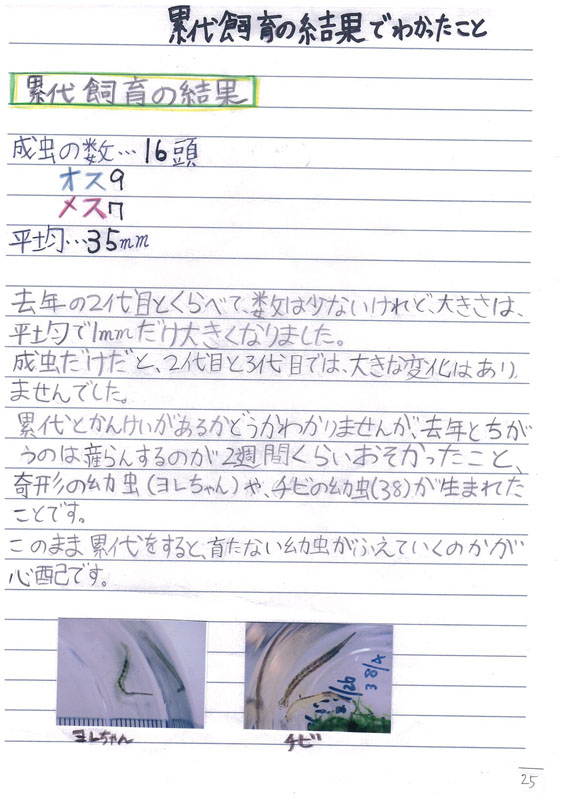 累代飼育の結果でわかったこと
累代飼育の結果
成虫の数…16頭
オス9
メス7
平均…35mm
去年の2代目とくらべて、数は少ないけれど、大きさは、
平均で1mmだけ大きくなりました。
成虫だけだと、2代目と3代目では、大きな変化はあり
ませんでした。
累代とかんけいがあるかどうかわかりませんが、去年とちが
うのは産らんするのが2週間くらいおそかったこと、
奇形の幼虫(ヨレちゃん)や、チビの幼虫(38)が生まれた
ことです。
このまま累代をすると、育たない幼虫がふえていくのかが
心配です。
38/4
ヨレちゃん
チビ
25